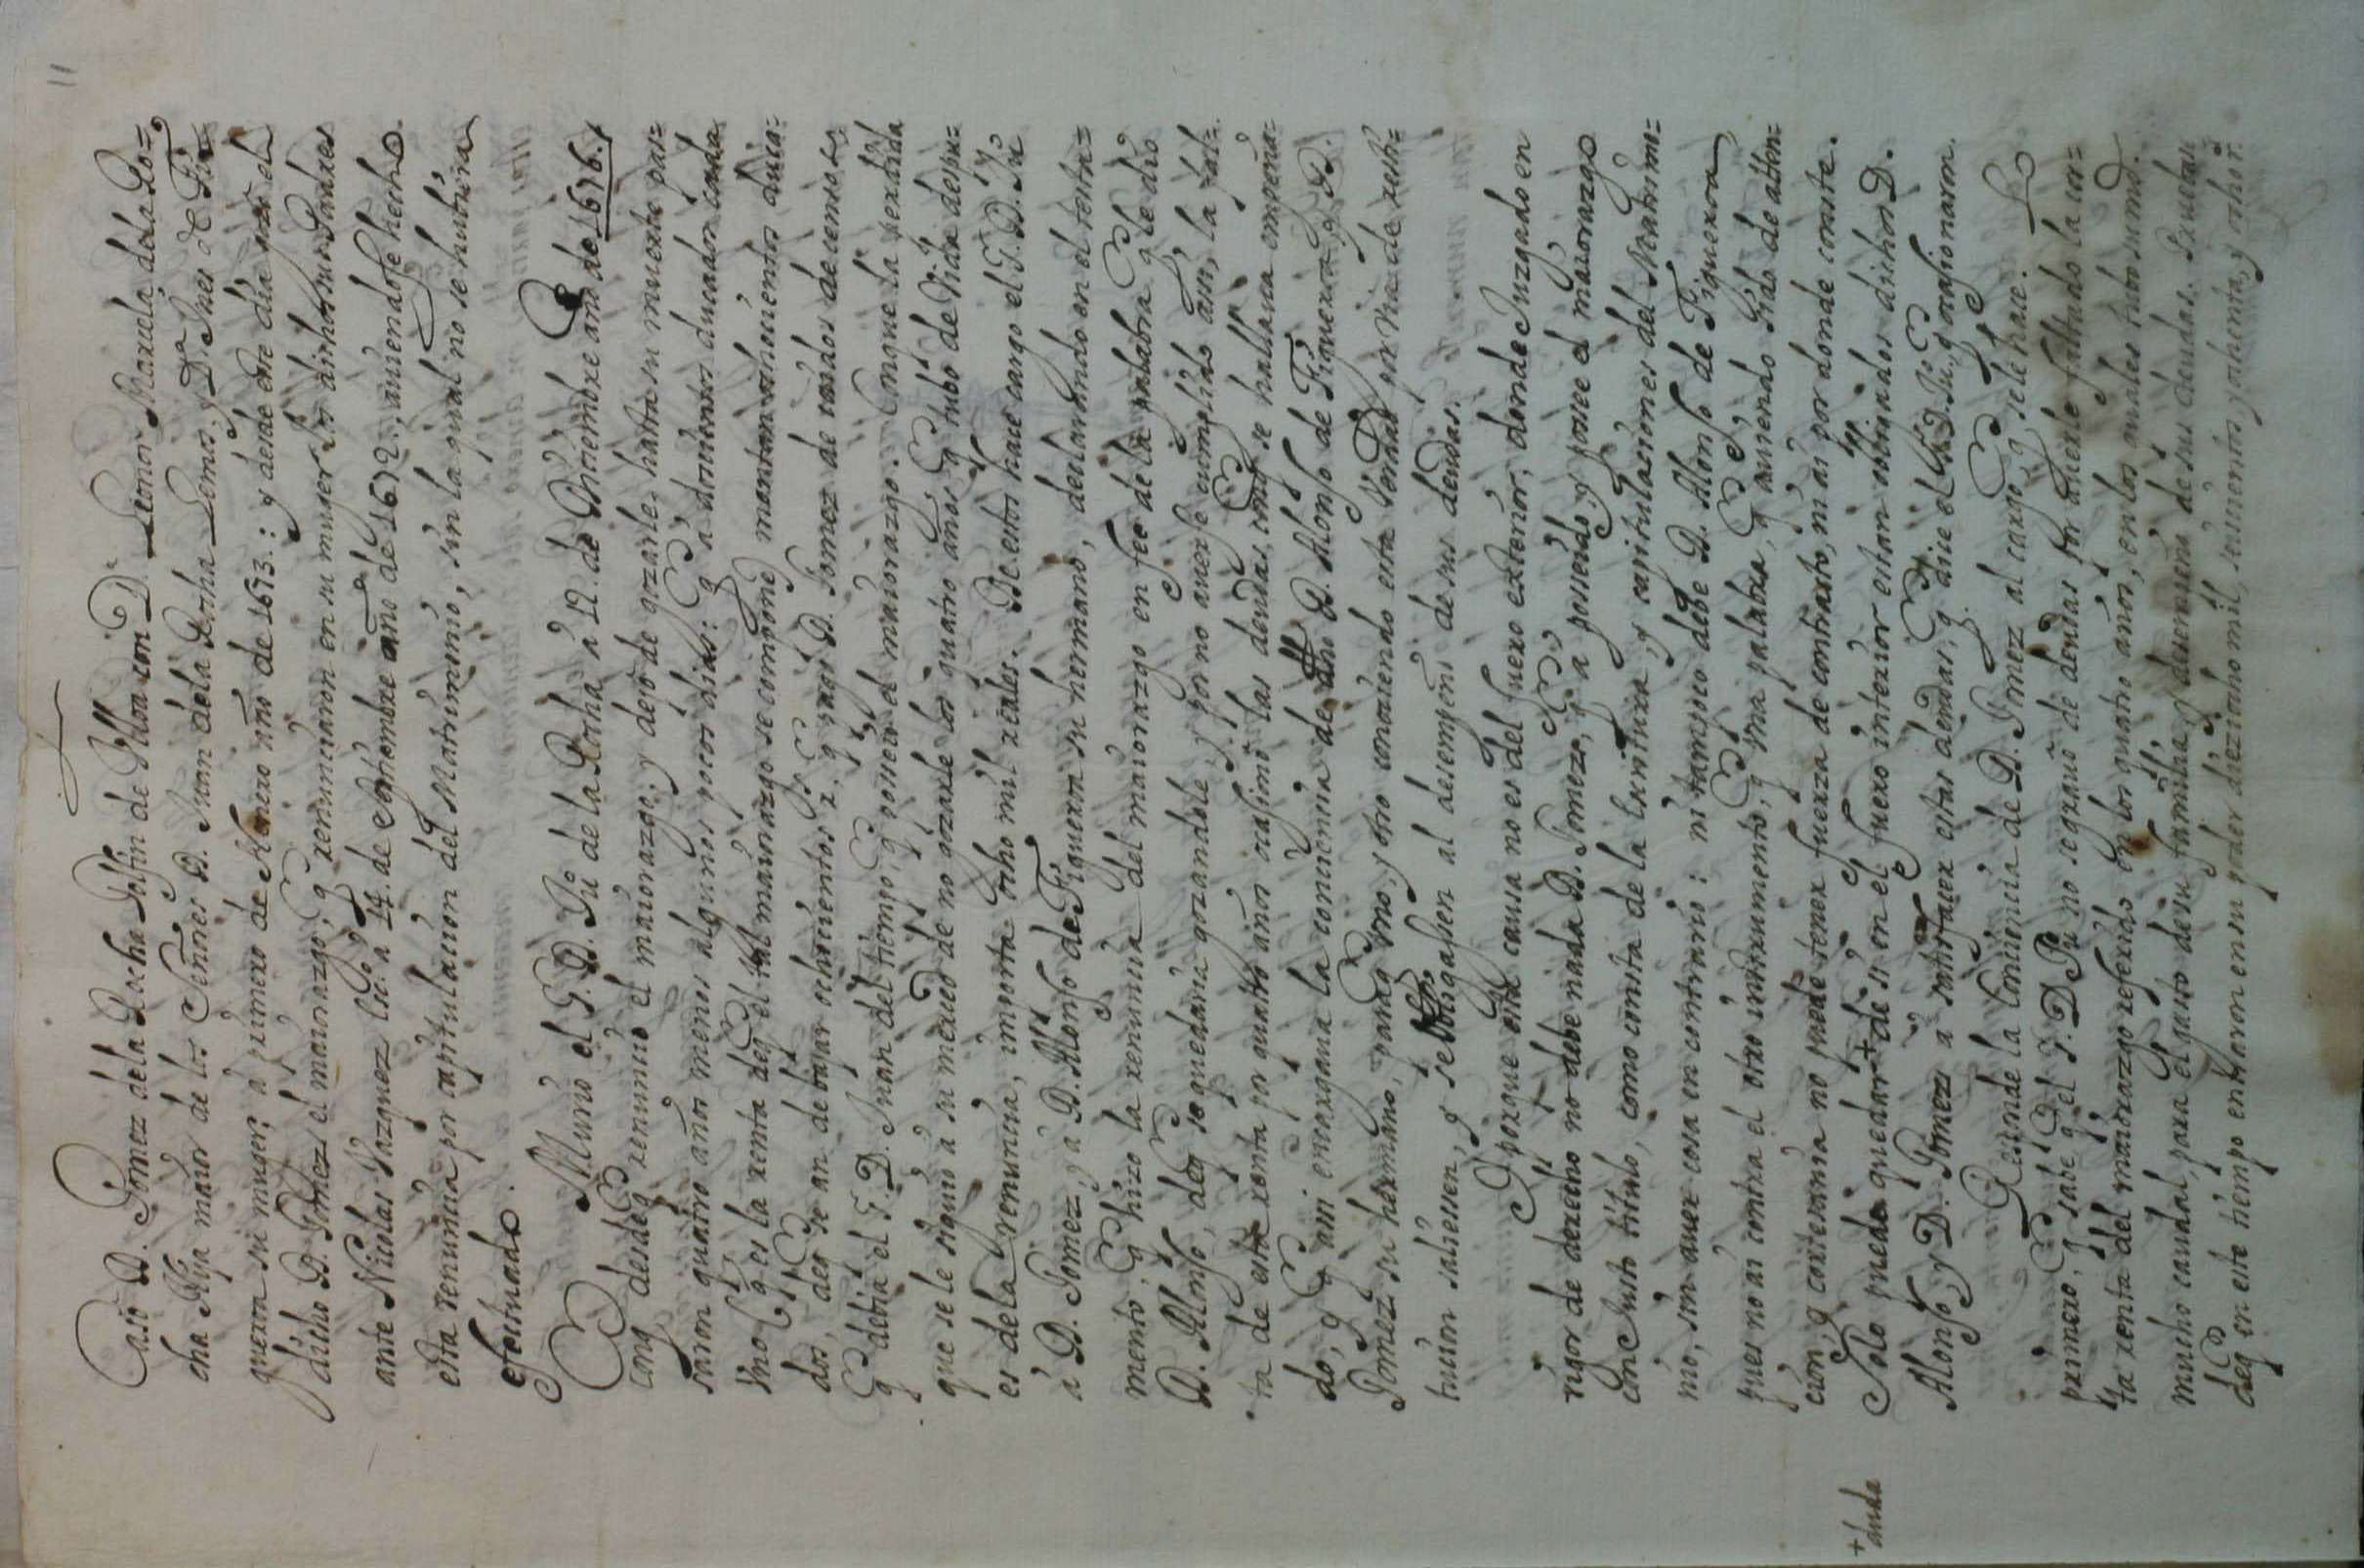 11
Casó D. Gomez dela Rocha Golfin de Ulloa con D.ª Leonor Marzela dela Ro=
cha Hija maior de los Señores D. Juan dela Rocha Lemos, y D.ª Ines de Fi=
gueroa su muger, a primero de Henero año de 1673.: y desde este dia por el
dicho D. Gomez el maiorazgo; q renunciaron en su muger los dichos sus Padres
ante Nicolas Vazquez Esc.º a 14. de Septiembre año de 1672., auiendose hecho
esta renuncia por capitulacion del Matrimonio, sin la qual no se hubiera
efectuado.
Murio el S. D. Ju.º de la Rocha a 12. de Diciembre año de 1676.
conq desde q renuncio el maiorazgo, y dejo de gozarle, hasta su muerte pas=
saron quatro años menos algunos pocos dias: q a docientos ducados cada
vno q es la renta deq el tal maiorazgo se compone montan ochocientos duca=
dos, deq se an de bajar ochocientos r.s q pagó D. Gomez de reditos de censos
q debia el S. D. Juan del tiempo, q posseio el maiorazgo. Conque la perdida
que se le siguio a su merced de no gozarle los quatro años q tubo de Vida despu=
es dela renuncia, importa ocho mil reales. De estos hace cargo el S. D. Ju.º
a D. Gomez, y a D. Alonso de Figueroa su hermano, declarando en el testa=
mento, q hizo la renuncia del maiorazgo en fee de la palabra q le dio
D. Alonso, deq se quedaria gozandole, y por no auerse cumplido assi, la fal=
ta de esta renta por quatro años ocasiono las deudas, conq se hallaua empeña=
do, y q assi encargaua la conciencia de D. Alonso de Figueroa, y D.
Gomez su hermano, paraq vno, y otro conociendo esta verdad por via de resti=
tucion saliessen, y se obligassen al desempeño de sus deudas.
Y porque esta causa no es del fuero exterior, donde Juzgado en
rigor de derecho no debe nada D. Gomez, q a posseido, y possee el maiorazgo
con Justo titulo, como consta de la Escritura, y capitulaciones del Matrimo=
nio, sin auer cosa en contrario: ni tampoco debe D. Alonso de Figueroa,
pues no ai contra el otro instrumento, q vna palabra, q auiendo sido de aten=
cion, q cortesania no puede tener fuerza de contrato, ni ai por donde conste.
Solo puede quedar + de si en el fuero interior estan obligados dichos D.
+ duda
Alonso, y D. Gomez a satisfacer estas deudas, q dice el S. D. Ju.º, q ocasionaron.
Responde la conciencia de D. Gomez al cargo, q se le hace.
primero, q sabe q el S. D. Ju.º no se grauo de deudas por auerle faltado la cor=
ta renta del maiorazgo referido en los quatro años, en los quales tubo sumo
mucho caudal para el gasto de su familia, y desempeño de sus deudas. Prueba
deq en este tiempo entraron en su poder dieziocho mil, setecientos, y ochenta, y ocho r.s